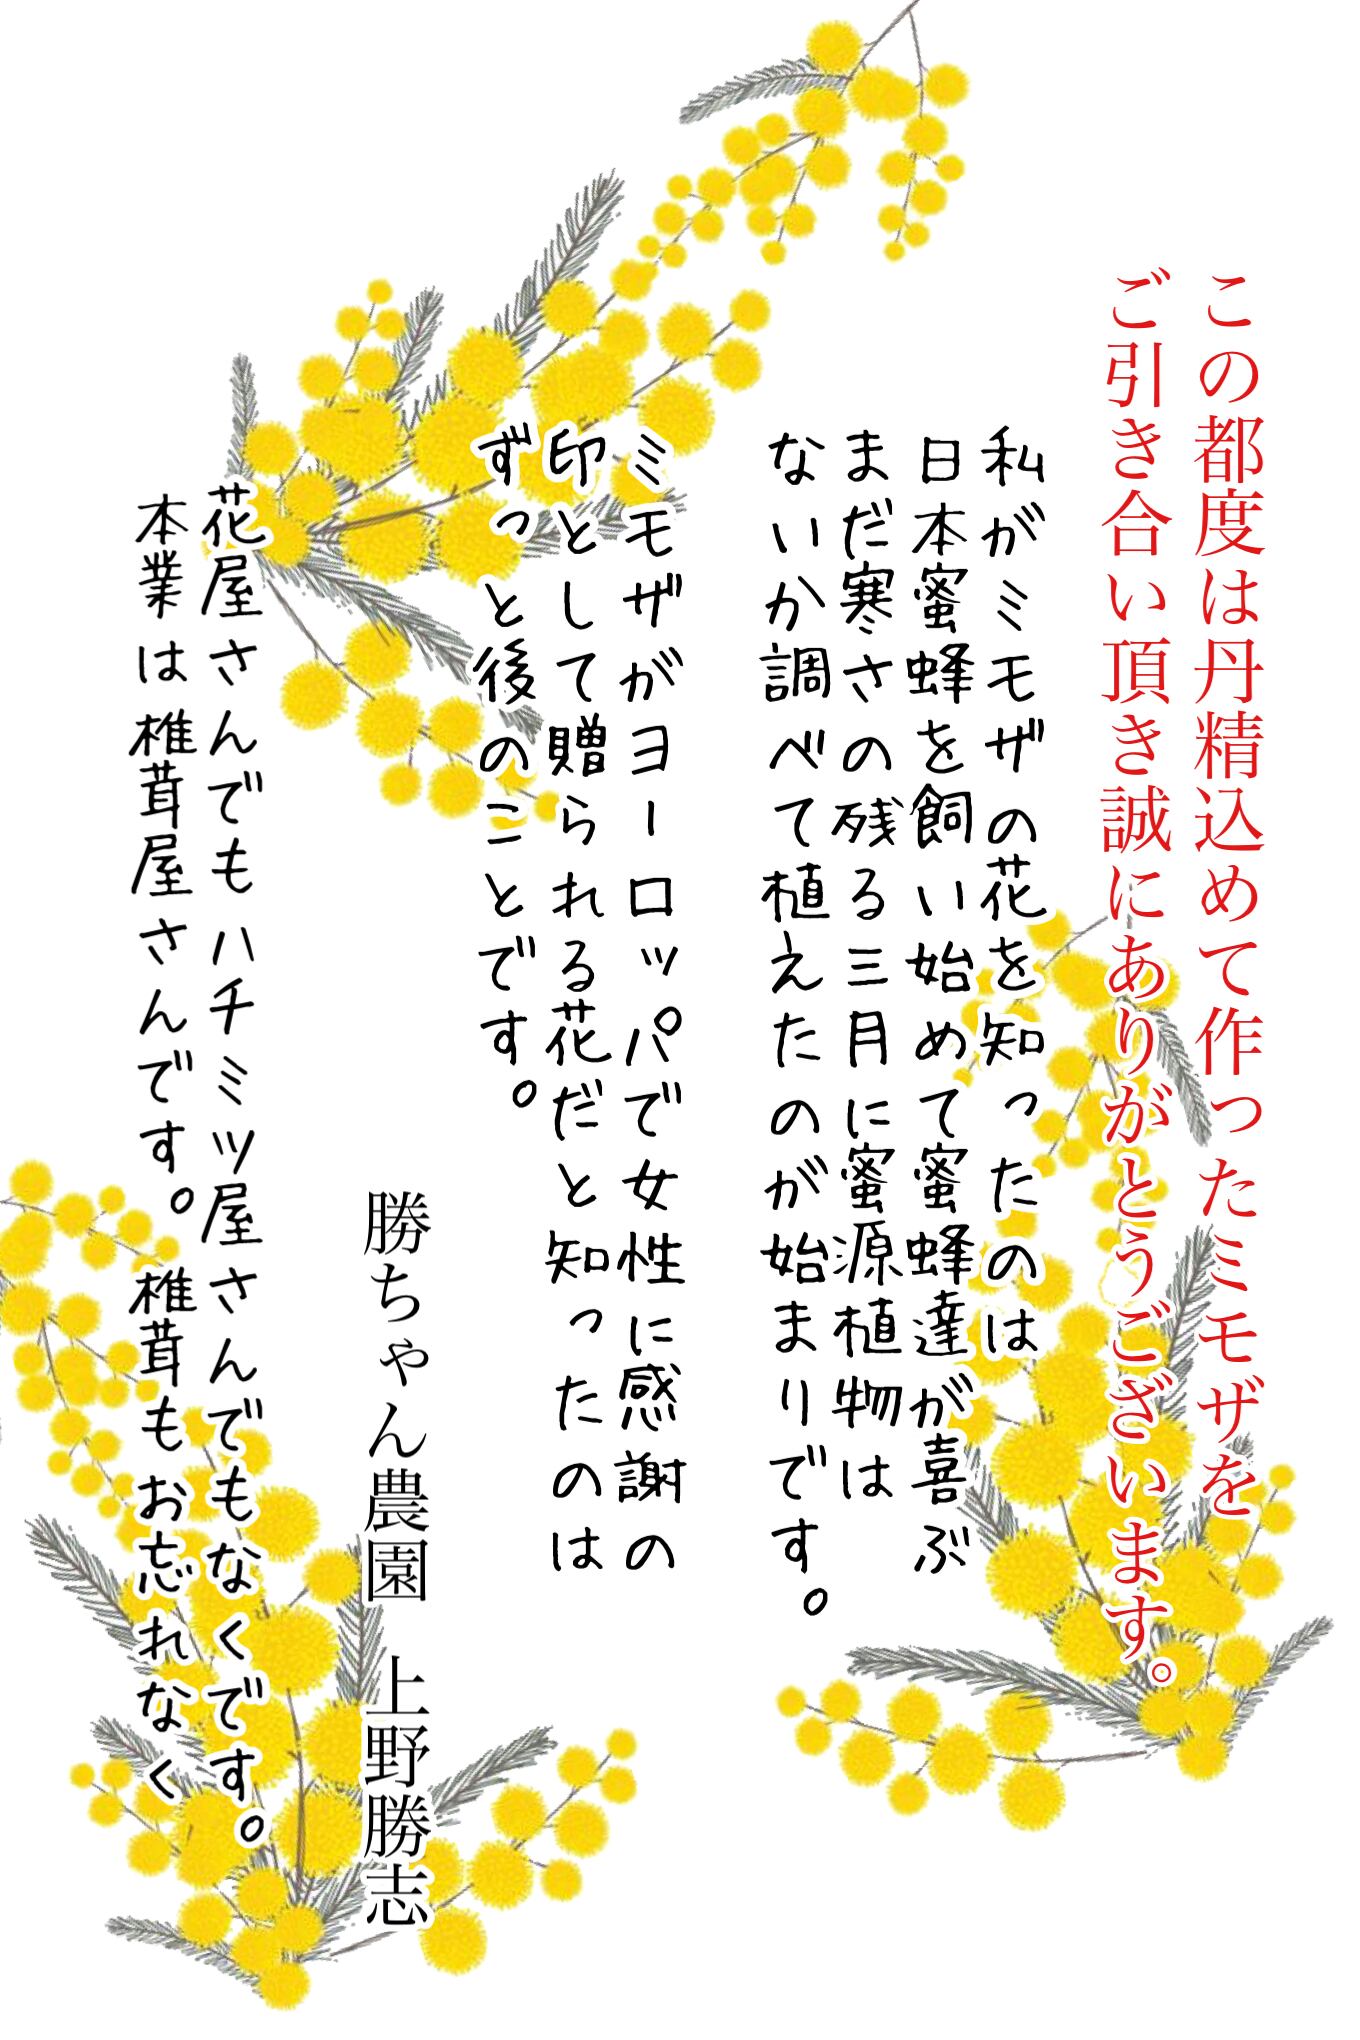 この都度は丹精込めて作ったミモザを
ご引き合い頂き誠にありがとうございます。
私がミモザの花を知ったのは
日本蜜蜂を飼い始めて蜜蜂達が喜ぶ
まだ寒さの残る三月に蜜源植物は
ないか調べて植えたのが始まりです。
ミモザがヨーロッパで女性に感謝の
印として贈られる花だと知ったのは
ずっと後のことです。
勝ちゃん農園　上野勝志
花屋さんでもハチミツ屋さんでもなくです。
本業は椎茸屋さんです。椎茸もお忘れなく